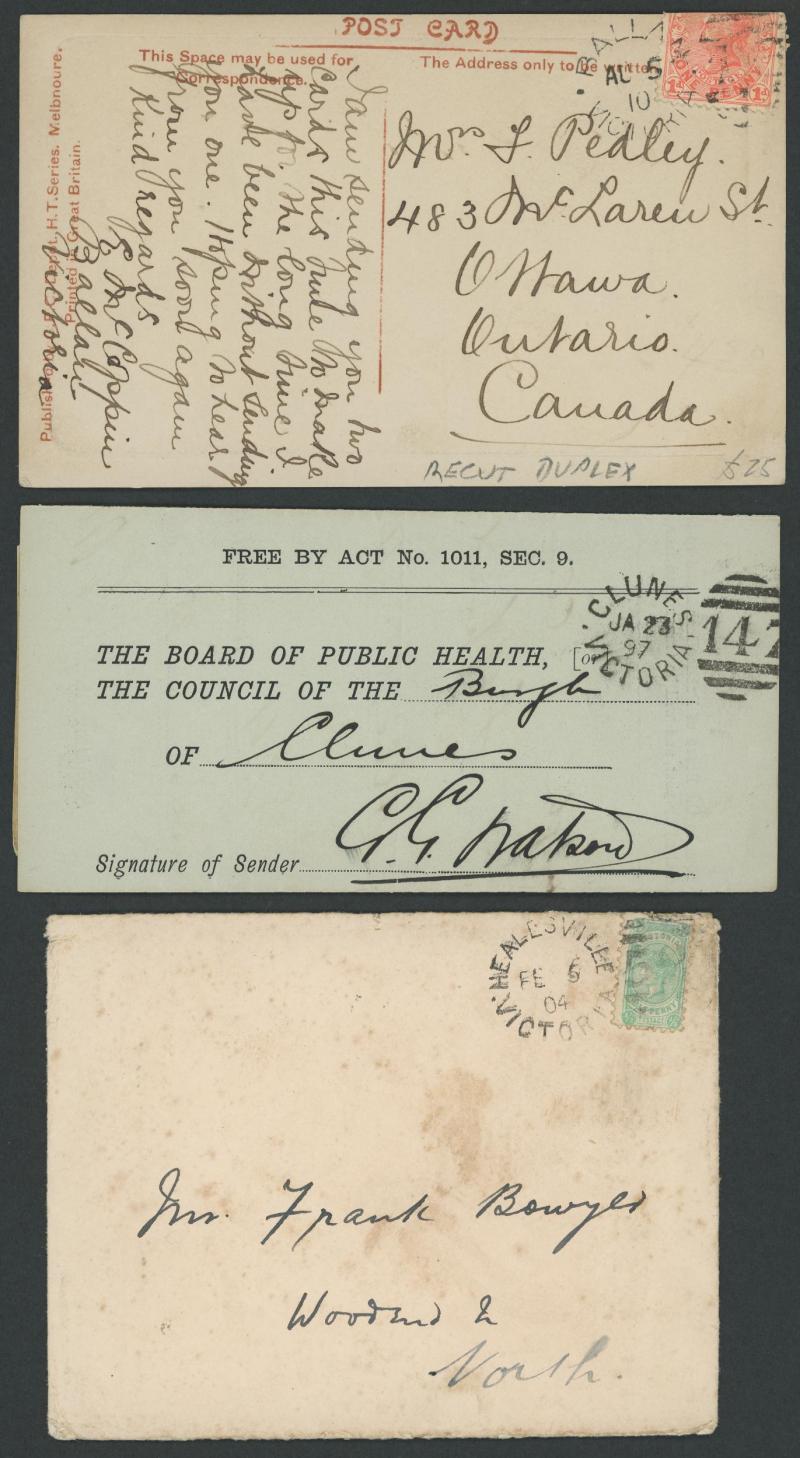 POST CARD
This Space may be used for
Correspondence.
The Address only to be written
BALLA
AU 5
10
VICTORIA
ONE PENNY
1d 1d
I am sending you two
cards this time to make
up for the long time I
have been without sending
you one. Hoping to hear
from you soon again
Kind regards
E McCoppin
Ballan
Victoria
H.T. Series. Melbnoure.
Printed in Great Britain.
Mrs. F. Pedley.
483 McLaren St.
Ottawa.
Ontario.
Canada.
RECUT DUPLEX
£25
FREE BY ACT No. 1011, SEC. 9.
CLUNES
JA 23
97
VICTORIA
147
THE BOARD OF PUBLIC HEALTH, [or
THE COUNCIL OF THE Burgh
OF Clunes
Signature of Sender G. G. Watson
HEALESVILLE
FE 5
04
VICTORIA
PENNY
Mr. Frank Bowyer
Woodend
North.